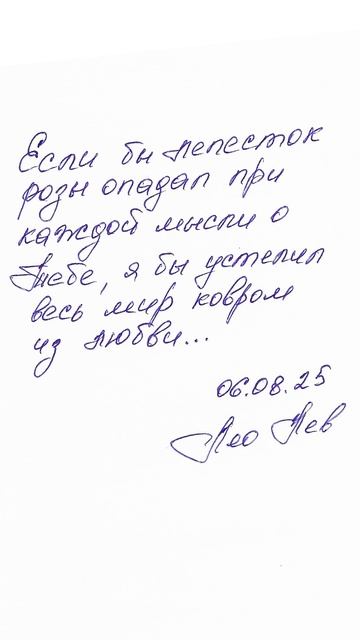 Если бы лепесток
розы опадал при
каждой мысли о
Тебе, я бы устелил
весь мир ковром
из любви...
06.08.25
Лео Лев